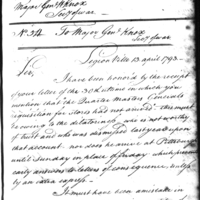 Major Genl H Knox
Secy of War
No. 34. To Major Genl Knox
Secy of War
Legion Ville 13 april 1793
Sir,
I have been honored by the receipt
of your letter of the 30 Ultimo in which you
mention that the Quarter Masters General's
requisition for stores had not arrived. this must
be owing to the who is not worthy
of trust and who was dismissed last year upon
that account. nor does he arrive at Pittsburg
until Sunday in place of friday which prevents
early answers to letters of consequence, unless
by an extra express.
It must have been a mistake in